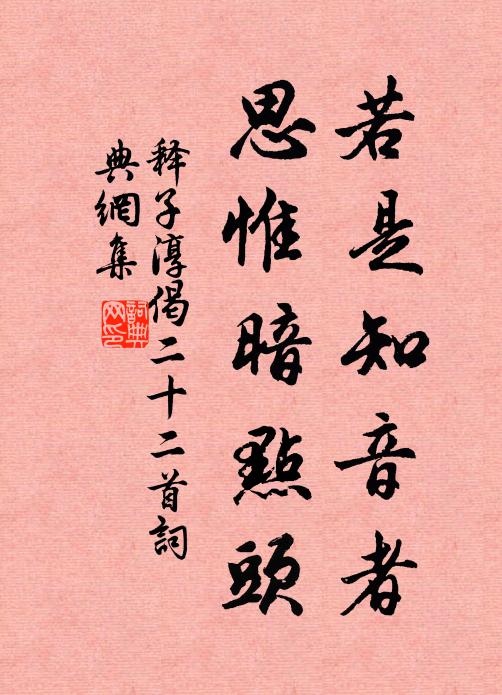 若是知音者
思惟暗點頭
释子淳偈二十二首詞
典網集
詞典
网印